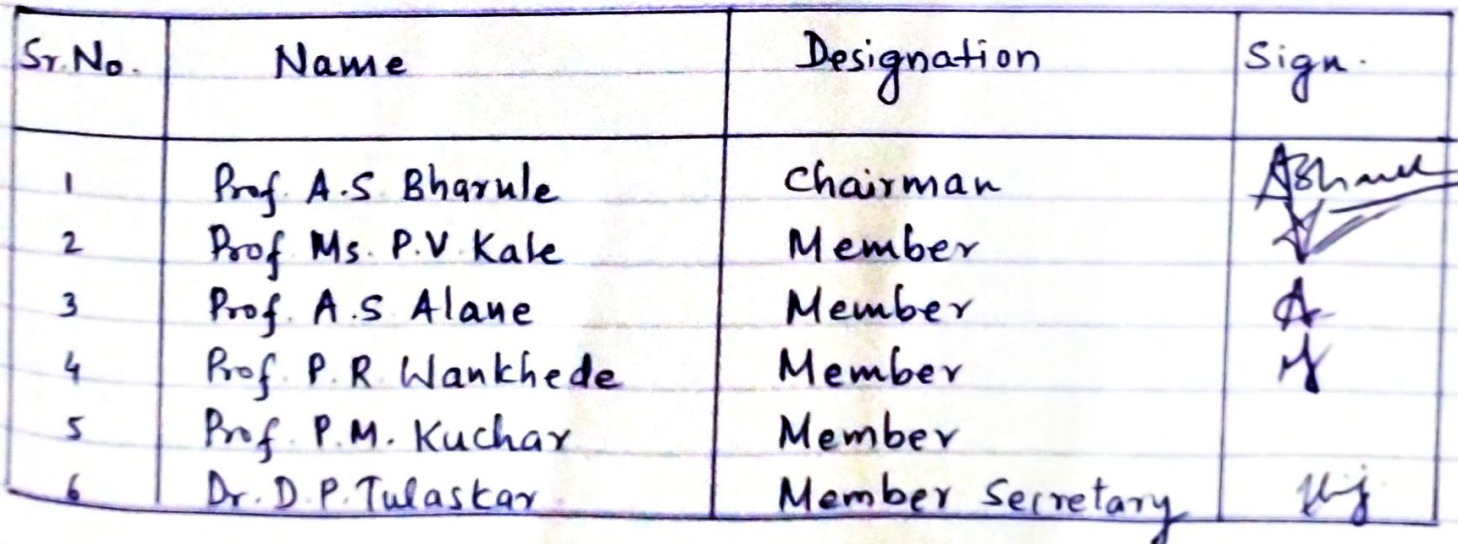 Sr. No. Name Designation Sign.
1 Prof. A.S Bharule Chairman
2 Prof Ms. P.V Kale Member
3 Prof. A.S Alane Member
4 Prof. P.R Wankhede Member
5 Prof. P.M. Kuchar Member
6 Dr. D.P. Tulaskar Member Secretary